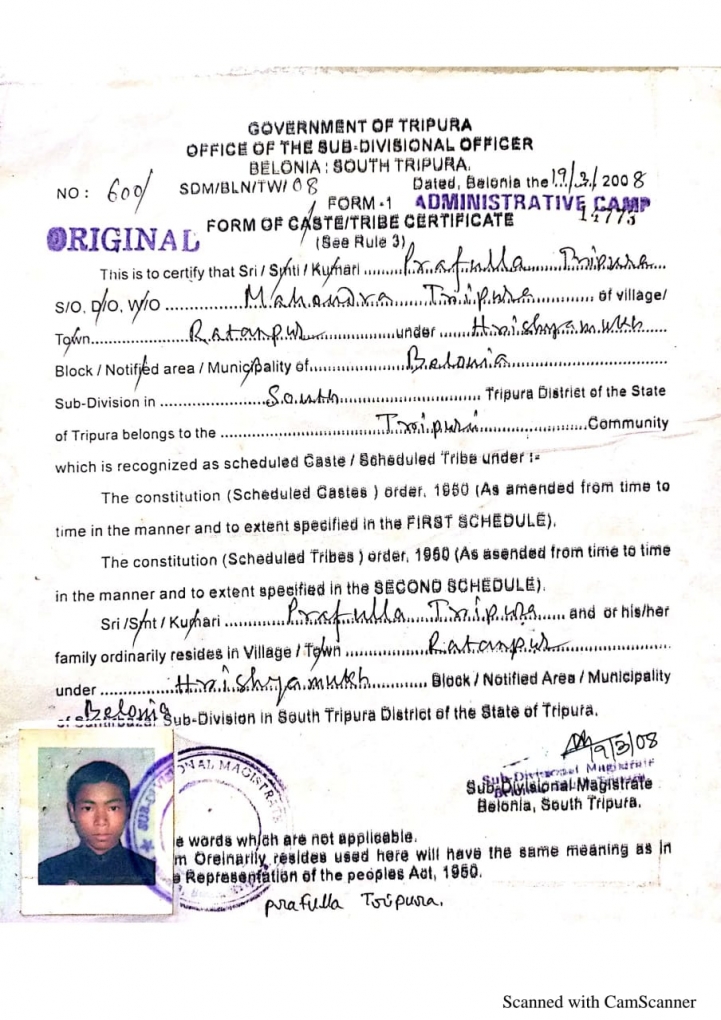 GOVERNMENT OF TRIPURA
OFFICE OF THE SUB-DIVISIONAL OFFICER
BELONIA : SOUTH TRIPURA.
NO : 600/ SDM/BLN/TW/ 08 Dated, Belonia the 19/3/2008
FORM -1 ADMINISTRATIVE CAMP
14773
ORIGINAL FORM OF CASTE/TRIBE CERTIFICATE
(See Rule 3)
This is to certify that Sri / Smti / Kumari ........ Prafulla Tripura
S/O, D/O, W/O ............ Mahandra Tripura ............ of village/
Town ............ Ratanpur ............ under ...... Hrishyamukh ......
Block / Notified area / Municipality of ............ Belonia ............
Sub-Division in ............ South ............ Tripura District of the State
of Tripura belongs to the ............ Tripuri ............ Community
which is recognized as scheduled Caste / Scheduled Tribe under :-
The constitution (Scheduled Castes ) order, 1950 (As amended from time to
time in the manner and to extent specified in the FIRST SCHEDULE).
The constitution (Scheduled Tribes ) order, 1950 (As asended from time to time
in the manner and to extent specified in the SECOND SCHEDULE).
Sri /Smt / Kumari ........ Prafulla Tripura ........ and or his/her
family ordinarily resides in Village / Town ............ Ratanpur ............
under ............ Hrishyamukh ............ Block / Notified Area / Municipality
Belonia Sub-Division in South Tripura District of the State of Tripura.
19/3/08
Sub-Divisional Magistrate
Sub-Divisional Magistrate
Belonia, South Tripura.
SUB-DIVISIONAL MAGISTRATE
e words which are not applicable.
m Oreinarily resides used here will have the same meaning as in
e Representation of the peoples Act, 1950.
prafulla Tripura.
Scanned with CamScanner